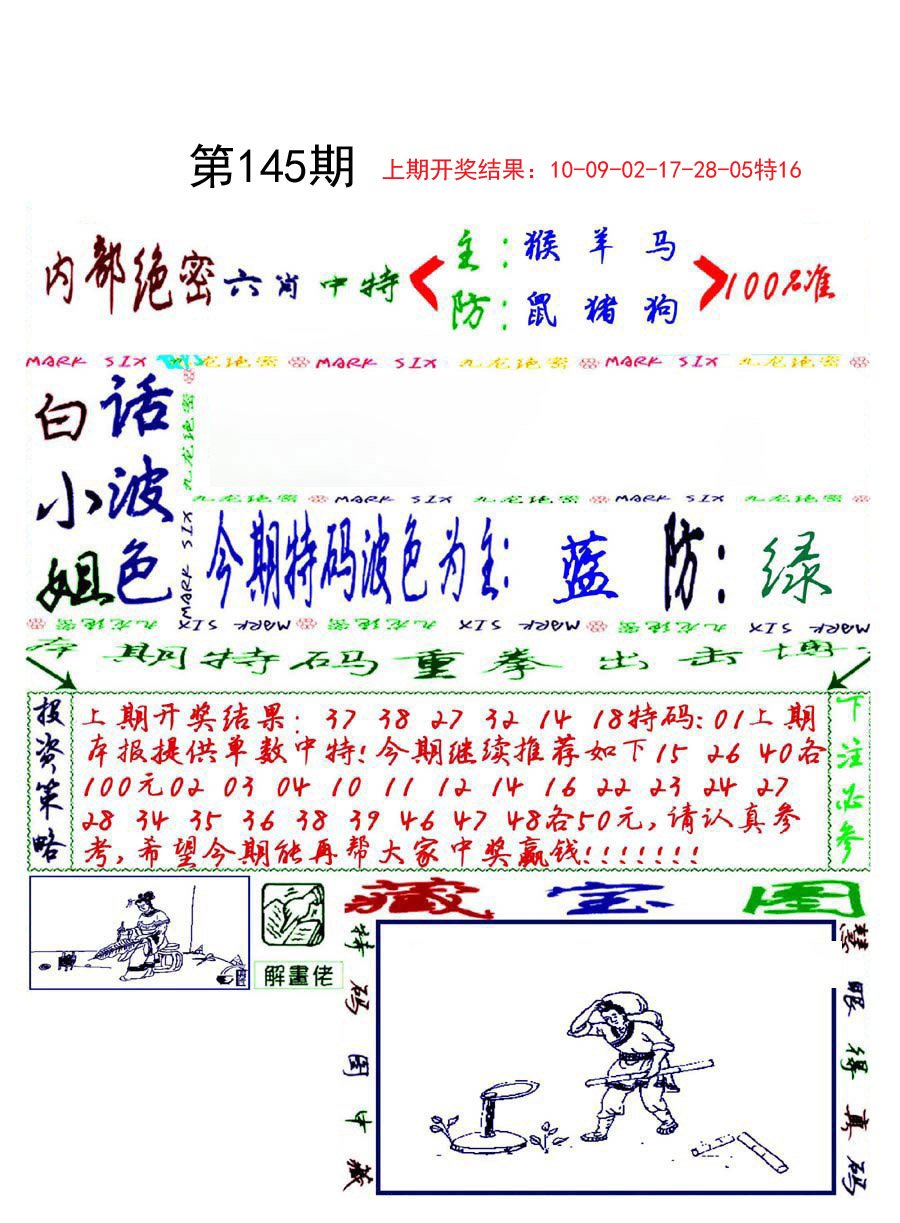 第145期 上期开奖结果：10-09-02-17-28-05特16
内部绝密六肖中特
主：猴羊马
防：鼠猪狗
100%准
MARK SIX 九龙绝密 MARK SIX 九龙绝密 MARK SIX 九龙绝密
白话
小波
姐色
九龙绝密
MARK SIX
九龙绝密 MARK SIX 九龙绝密 MARK SIX 九龙绝密
今期特码波色为主：蓝 防：绿
九龙绝密 MARK SIX 九龙绝密 MARK SIX 九龙绝密 MARK SIX
本期特码重拳出击博
投资策略
上期开奖结果：37 38 27 32 14 18特码：01上期
本报提供单数中特！今期继续推荐如下15 26 40各
100元02 03 04 10 11 12 14 16 22 23 24 27
28 34 35 36 38 39 46 47 48各50元，请认真参
考，希望今期能再帮大家中奖赢钱！！！！！！！
下注必参
解畫佬
藏宝图
特码图中藏
慧眼得真码